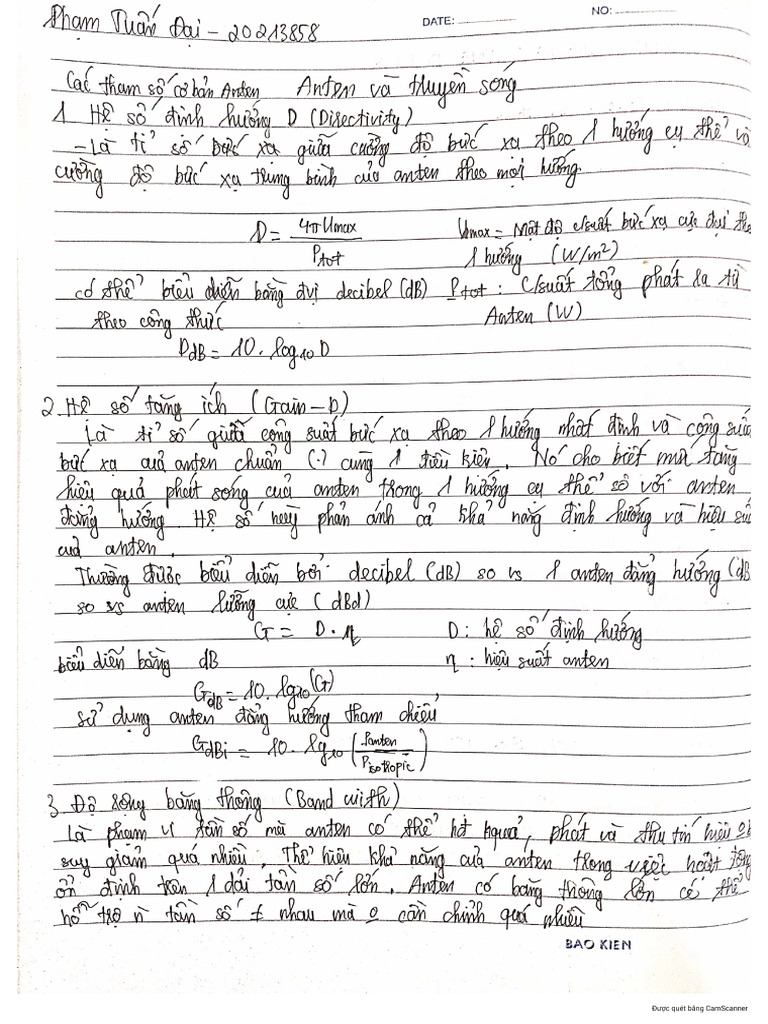 Phạm Tuấn Đại - 20213858
DATE:
NO:
Các tham số cơ bản Anten Anten và truyền sóng
1 Hệ số định hướng D (Directivity)
- Là tỉ số bức xạ giữa cường độ bức xạ theo 1 hướng cụ thể và
cường độ bức xạ trung bình của anten theo mọi hướng.
D = 4πUmax / Ptot
Umax = Mật độ c/suất bức xạ cực đại the
1 hướng (W/m²)
có thể biểu diễn bằng đvị decibel (dB) Ptot : C/suất tổng phát ra từ
theo công thức Anten (W)
DdB = 10. log10 D
2. Hệ số tăng ích (Gain - D)
Là tỉ số giữa công suất bức xạ theo 1 hướng nhất định và công suấ
bức xạ của anten chuẩn (.) cùng 1 điều kiện. Nó cho biết mức tăng
hiệu quả phát sóng của anten trong 1 hướng cụ thể so với anten
đẳng hướng. Hệ số này phản ánh cả khả năng định hướng và hiệu su
của anten.
Thường được biểu diễn bởi decibel (dB) so vs 1 anten đẳng hướng (dB
so vs anten lưỡng cực (dBd)
G = D. η D: hệ số định hướng
biểu diễn bằng dB η : hiệu suất anten
GdB = 10. lg10 (G)
sử dụng anten đẳng hướng tham chiếu
GdBi = 10. lg10 (Panten / Pisotropic)
3. Độ rộng băng thông (Band with)
Là phạm vi tần số mà anten có thể hđ hquả, phát và thu tín hiệu o b
suy giảm quá nhiều. Thể hiện khả năng của anten trong việc hoạt động
ổn định trên 1 dải tần số lớn. Anten có băng thông lớn có thể
hỗ trợ n tần số ≠ nhau mà o cần chỉnh quá nhiều
BAO KIEN
Được quét bằng CamScanner